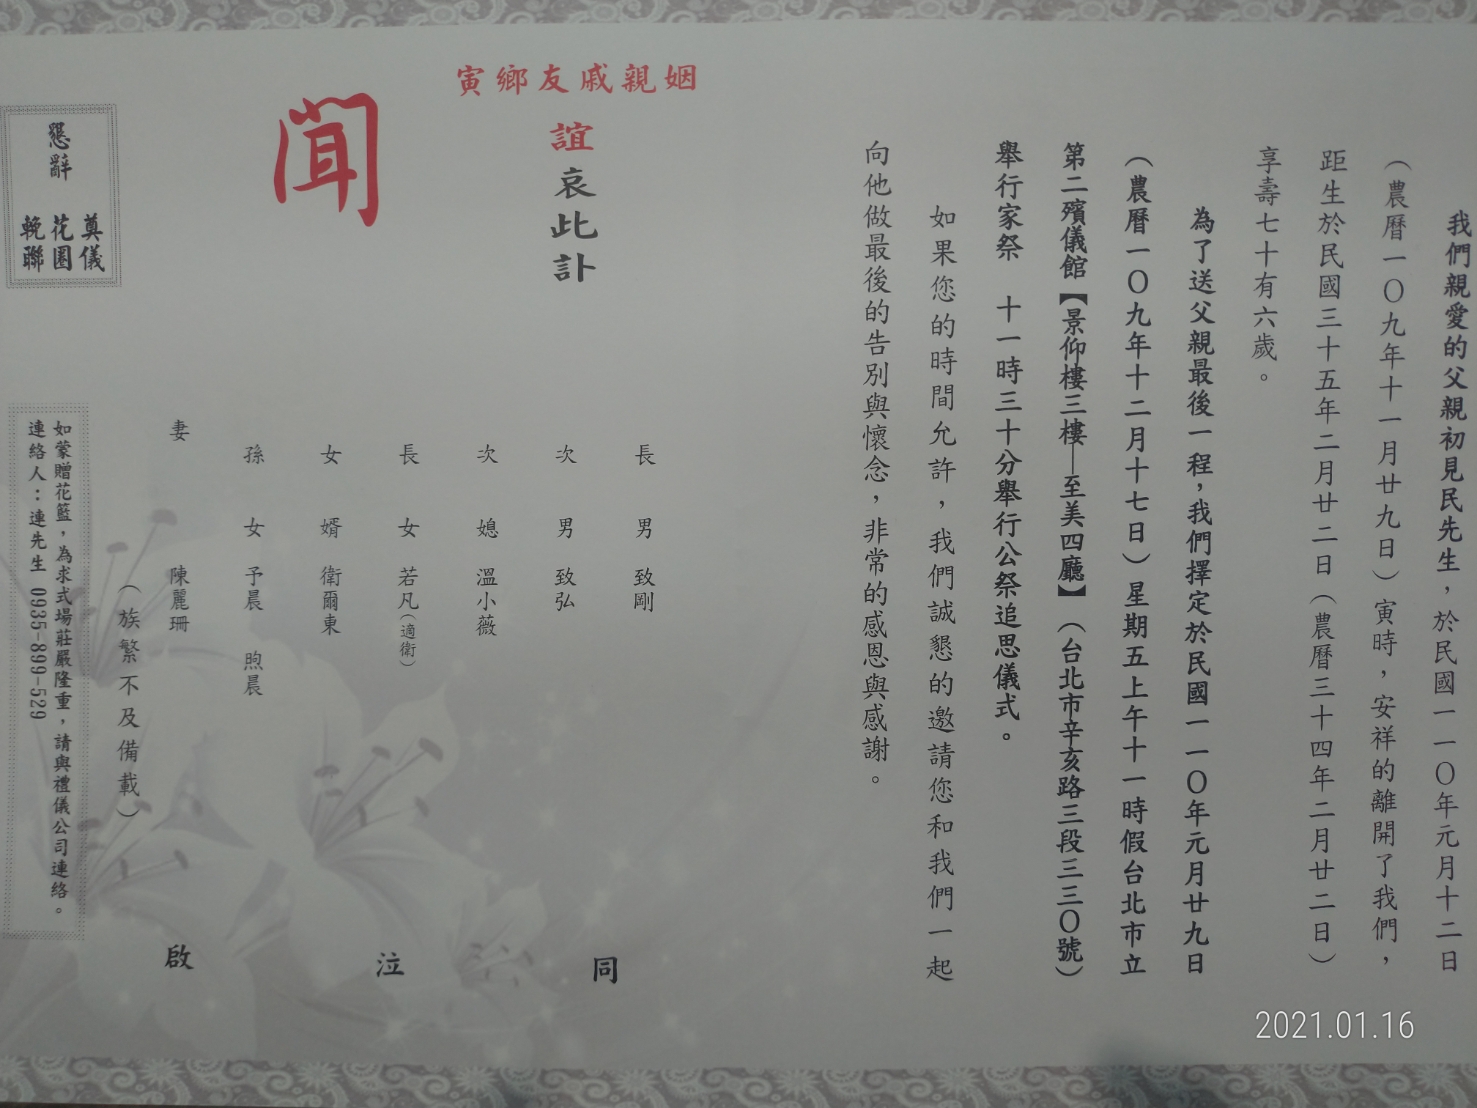 我們親愛的父親初見民先生，於民國一一〇年元月十二日
（農曆一〇九年十一月廿九日）寅時，安祥的離開了我們，
距生於民國三十五年二月廿二日（農曆三十四年二月廿二日）
享壽七十有六歲。
為了送父親最後一程，我們擇定於民國一一〇年元月廿九日
（農曆一〇九年十二月十七日）星期五上午十一時假台北市立
第二殯儀館【景仰樓三樓—至美四廳】（台北市辛亥路三段三三〇號）
舉行家祭　十一時三十分舉行公祭追思儀式。
如果您的時間允許，我們誠懇的邀請您和我們一起
向他做最後的告別與懷念，非常的感恩與感謝。
寅鄉友戚親姻
誼哀此訃
聞
長男 致剛
次男 致弘
次媳 溫小薇
長女 若凡（適衛）
女婿 衛爾東
孫女 予晨 煦晨
妻 陳麗珊
（族繁不及備載）
同
泣
啟
懇辭
奠儀
花圈
輓聯
如蒙贈花籃，為求式場莊嚴隆重，請與禮儀公司連絡。
連絡人：連先生 0935-899-529
2021.01.16